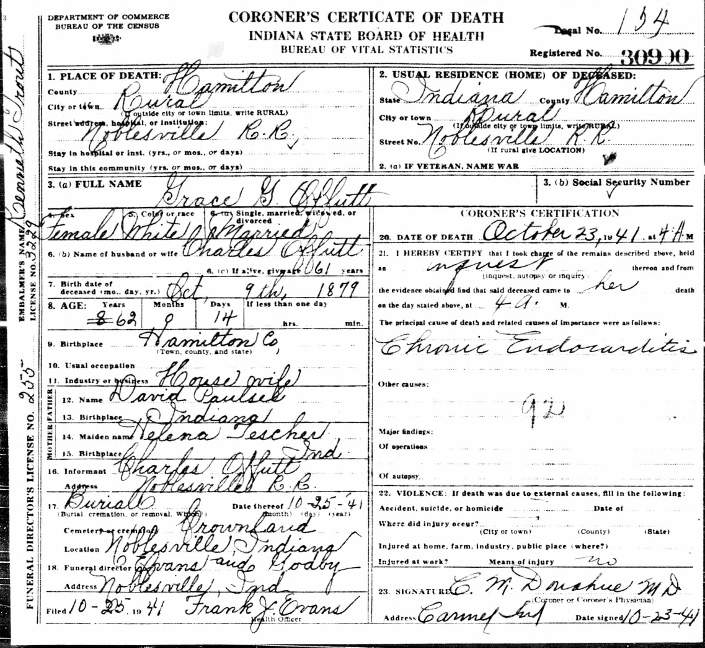 DEPARTMENT OF COMMERCE
BUREAU OF THE CENSUS
CORONER'S CERTICATE OF DEATH
INDIANA STATE BOARD OF HEALTH
BUREAU OF VITAL STATISTICS
Local No. 154
Registered No. 30900
1. PLACE OF DEATH:
County Hamilton
City or town Rural
(If outside city or town limits, write RURAL)
Street address, hospital, or institution:
Noblesville R.R.
Stay in hospital or inst. (yrs., or mos., or days)
Stay in this community (yrs., or mos., or days)
2. USUAL RESIDENCE (HOME) OF DECEASED:
State Indiana County Hamilton
City or town Rural
(If outside city or town limits, write RURAL)
Street No. Noblesville R.R.
(If rural give LOCATION)
2. (a) IF VETERAN, NAME WAR
3. (a) FULL NAME Grace G. Offutt
3. (b) Social Security Number
4. Sex Female
5. Color or race White
6. (a) Single, married, widowed, or divorced Married
6. (b) Name of husband or wife Charles Offutt
6. (c) If alive, give age 61 years
7. Birth date of
deceased (mo., day, yr.) Oct, 9th, 1879
8. AGE: Years Months Days If less than one day
62 0 14 hrs. min.
9. Birthplace Hamilton Co,
(Town, county, and state)
10. Usual occupation
11. Industry or business House wife
FATHER
12. Name David Paulsel
13. Birthplace Indiana
MOTHER
14. Maiden name Helena Tescher
15. Birthplace Ind
16. Informant Charles Offutt
Address Noblesville R.R.
17. Burial Date thereof 10-25-'41
(Burial, cremation, or removal, Which) (month) (day) (year)
Cemetery or cremation Crownland
Location Noblesville, Indiana
18. Funeral director Evans and Godby
Address Noblesville, Ind
Filed 10-25, 1941 Frank J. Evans
Health Officer
CORONER'S CERTIFICATION
20. DATE OF DEATH October 23, 1941, at 4 A M
21. I HEREBY CERTIFY that I took charge of the remains described above, held
an inquest thereon and from
(inquest, autopsy or inquiry)
the evidence obtained find that said deceased came to her death
on the day stated above, at 4 a. M.
The principal cause of death and related causes of importance were as follows:
Chronic Endocarditis
Other causes:
92
Major findings:
Of operations
Of autopsy
22. VIOLENCE: If death was due to external causes, fill in the following:
Accident, suicide, or homicide Date of
Where did injury occur?
(City or town) (County) (State)
Injured at home, farm, industry, public place (where?)
Injured at work? Means of injury no
23. SIGNATURE C. M. Donahue MD
(Coroner or Coroner's Physician)
Address Carmel Ind Date signed 10-23-41
EMBALMER'S NAME Kenneth Trout
LICENSE NO. 3229
FUNERAL DIRECTOR'S LICENSE NO. 255